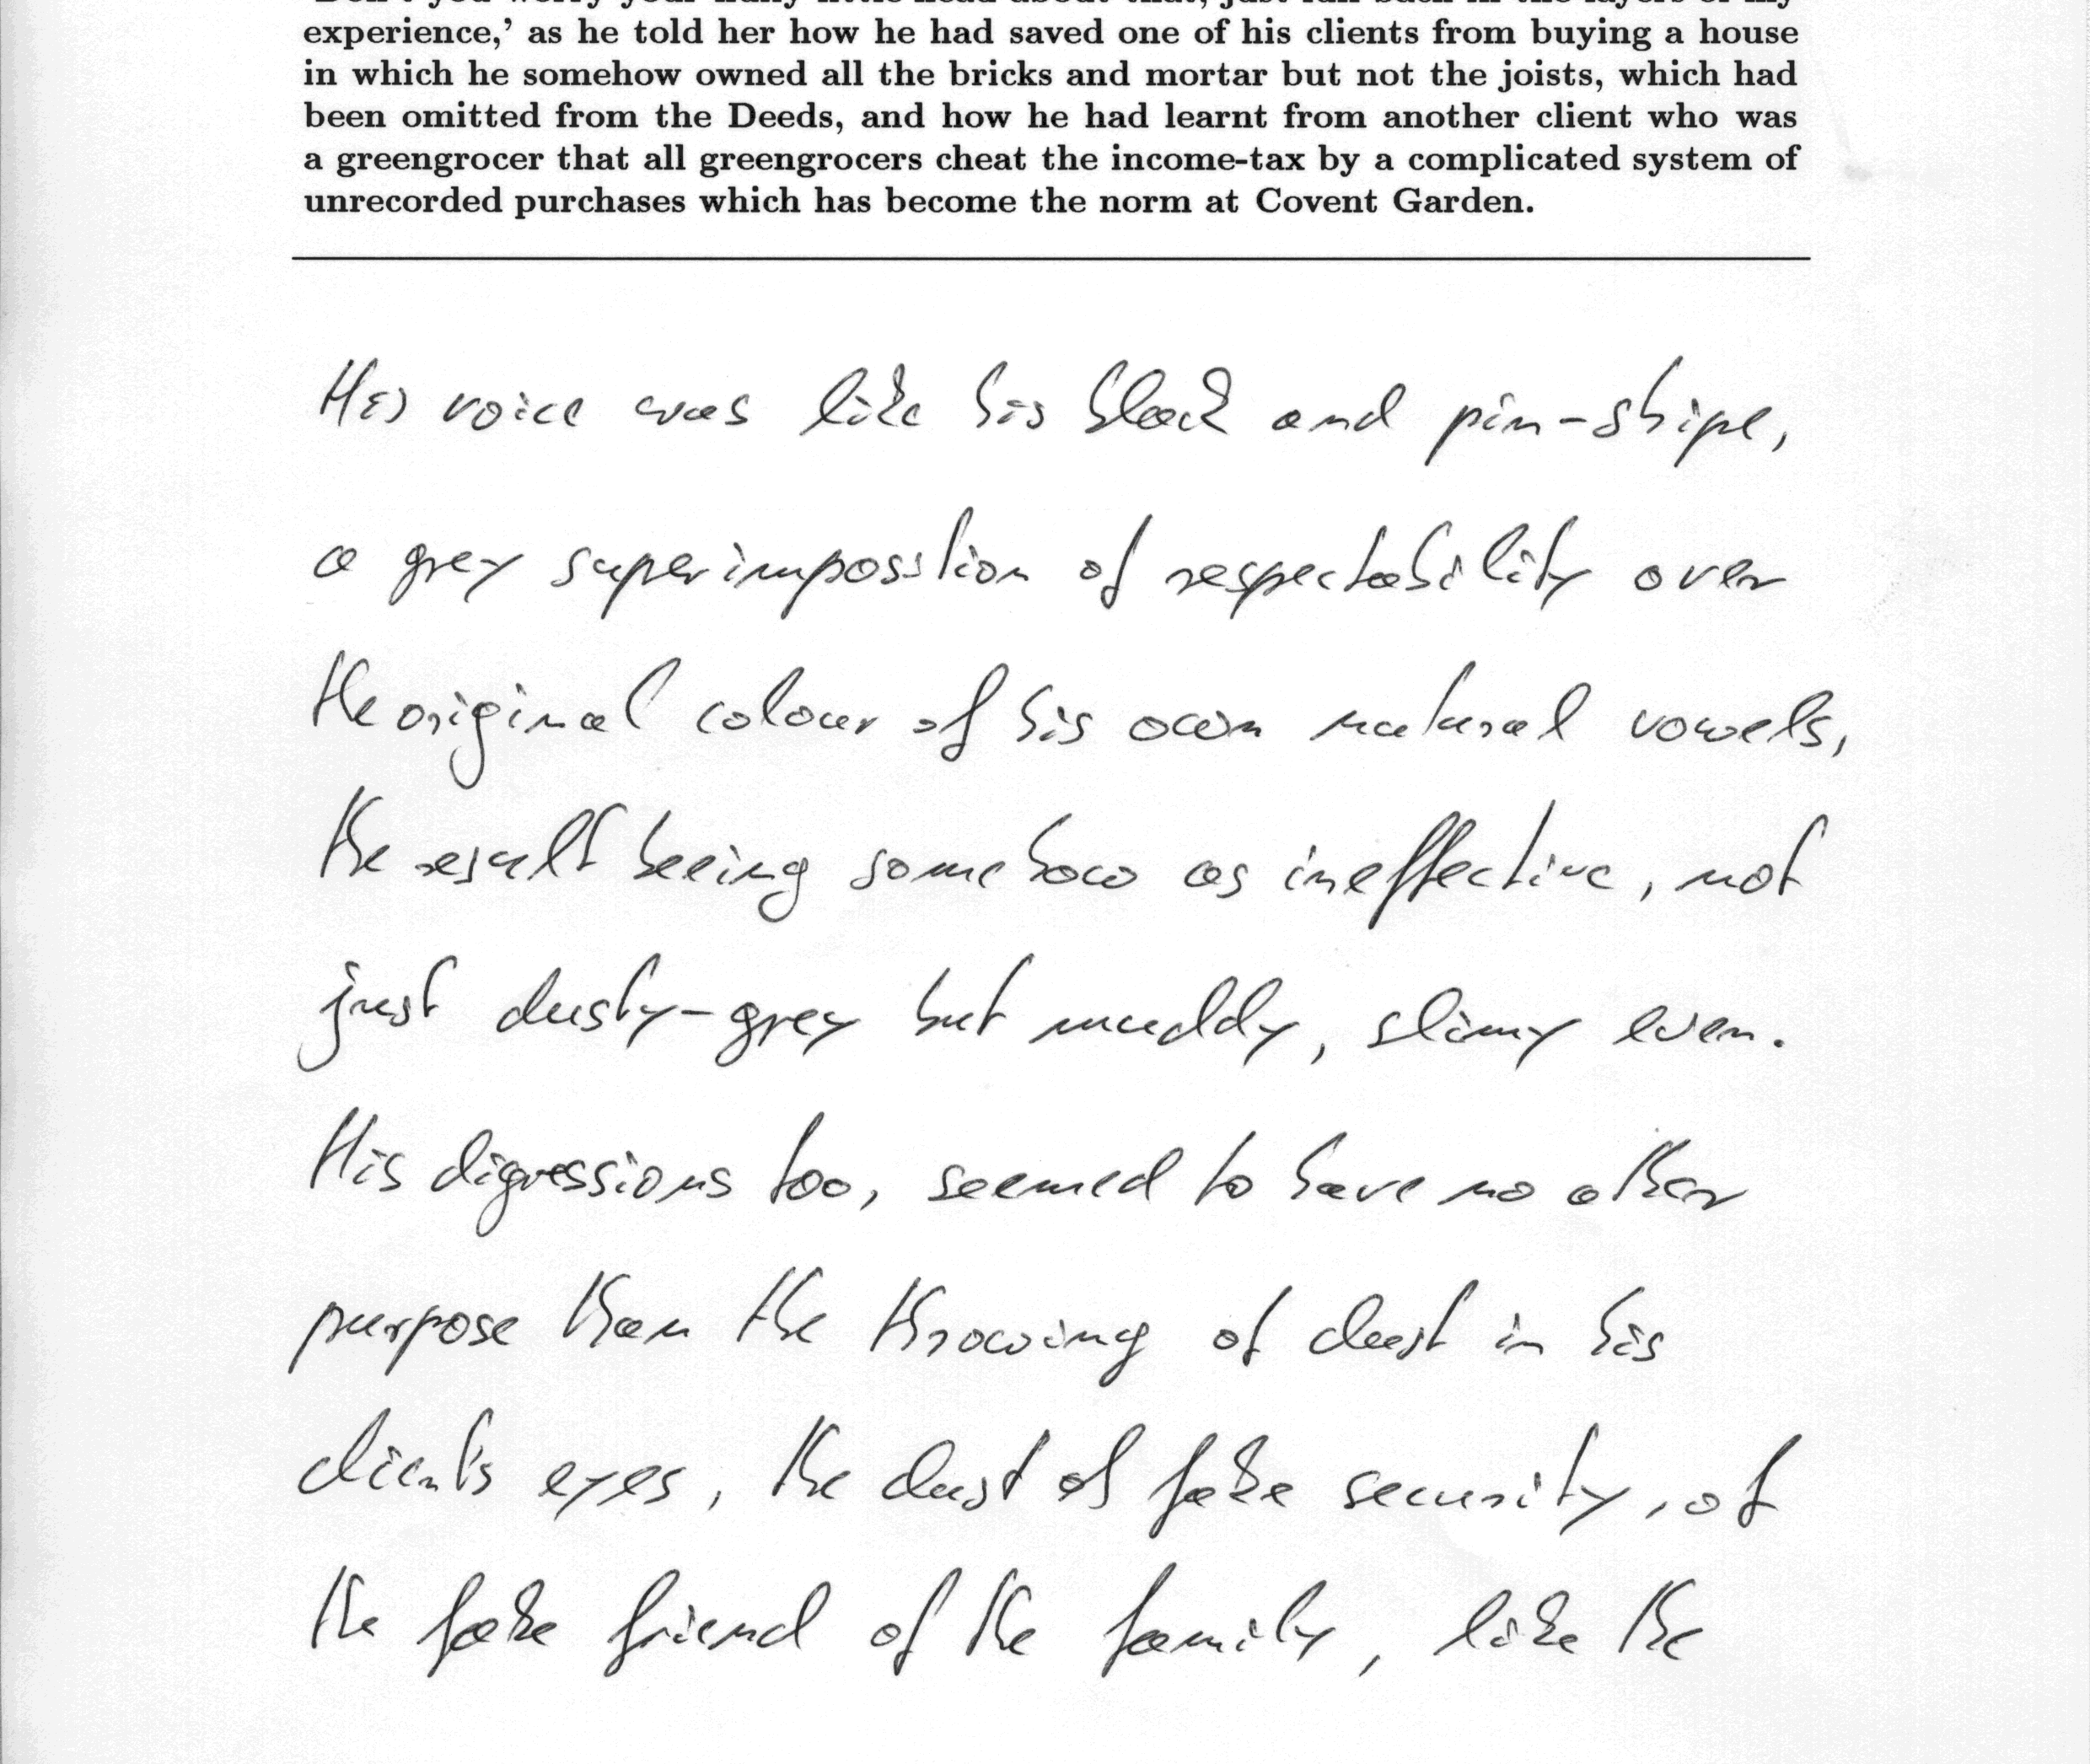 experience,' as he told her how he had saved one of his clients from buying a house
in which he somehow owned all the bricks and mortar but not the joists, which had
been omitted from the Deeds, and how he had learnt from another client who was
a greengrocer that all greengrocers cheat the income-tax by a complicated system of
unrecorded purchases which has become the norm at Covent Garden.
His voice was like his black and pin-stripe,
a grey superimposition of respectability over
the original colour of his own natural vowels,
the result beeing somehow as ineffective, not
just dusty-grey but muddy, slimy even.
His digressions too, seemed to have no other
purpose than the throwing of dust in his
client's eyes, the dust of fake security, of
the fake friend of the family, like the